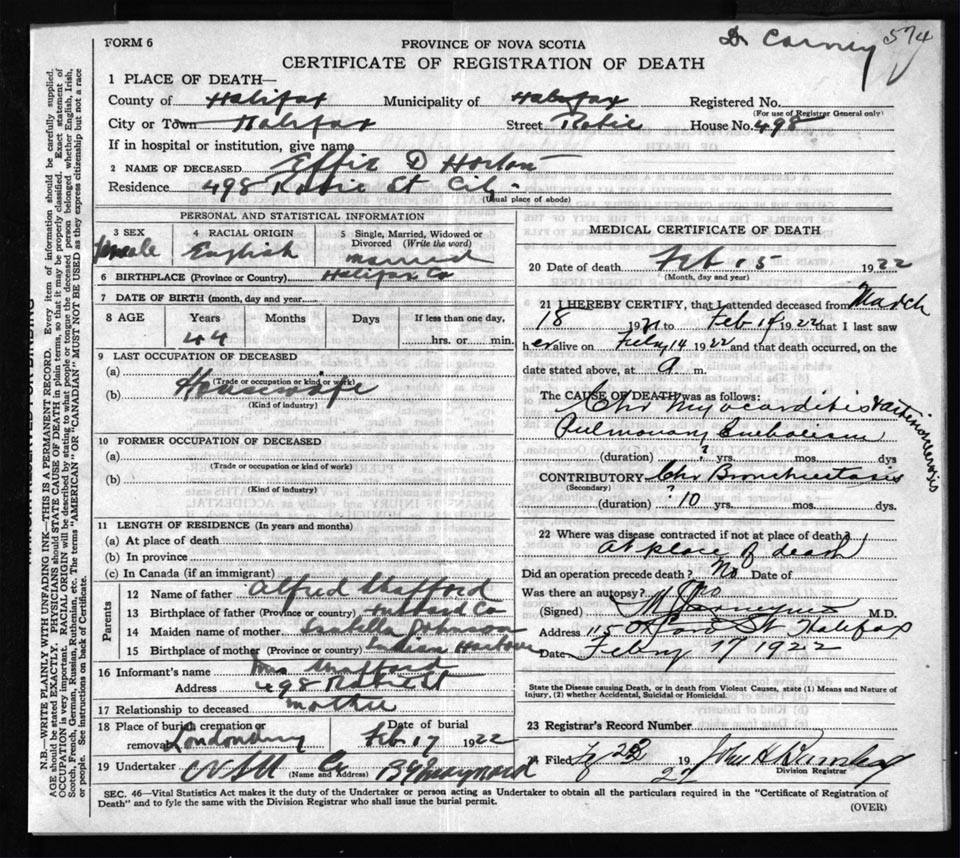 FORM 6
PROVINCE OF NOVA SCOTIA
Dr Carney 574
CERTIFICATE OF REGISTRATION OF DEATH
1 PLACE OF DEATH—
County of Halifax Municipality of Halifax Registered No.
(For use of Registrar General only)
City or Town Halifax Street Robie House No. 498
If in hospital or institution, give name
2 NAME OF DECEASED Effie D Horton
Residence 498 Robie St City
(Usual place of abode)
PERSONAL AND STATISTICAL INFORMATION
3 SEX 4 RACIAL ORIGIN 5 Single, Married, Widowed or Divorced (Write the word)
Female English married
6 BIRTHPLACE (Province or Country) Halifax Co
7 DATE OF BIRTH (month, day and year)
8 AGE Years Months Days If less than one day,
44 hrs. or min.
9 LAST OCCUPATION OF DECEASED
(a)
(Trade or occupation or kind or work)
(b) Housewife
(Kind of industry)
10 FORMER OCCUPATION OF DECEASED
(a)
(Trade or occupation or kind of work)
(b)
(Kind of industry)
11 LENGTH OF RESIDENCE (In years and months)
(a) At place of death
(b) In province
(c) In Canada (if an immigrant)
Parents
12 Name of father Alfred
13 Birthplace of father (Province or country)
14 Maiden name of mother Isabella Johnson
15 Birthplace of mother (Province or country) Indian Harbour
16 Informant's name Mrs
Address 498 Robie St
17 Relationship to deceased mother
18 Place of burial cremation or removal Date of burial
Feb 17 1922
19 Undertaker
(Name and Address)
MEDICAL CERTIFICATE OF DEATH
20 Date of death Feb 15 1922
(Month, day and year)
21 I HEREBY CERTIFY, that I attended deceased from March
18 1921 to Feb 14 1922 that I last saw
her alive on Feby 14 1922 and that death occurred, on the
date stated above, at a m.
The CAUSE OF DEATH was as follows:
Chr Myocarditis
Pulmonary Embolism
(duration) ? yrs. mos. dys
CONTRIBUTORY Chr Bronchiectasis
(Secondary)
(duration) 10 yrs. mos. dys.
22 Where was disease contracted if not at place of death?
At place of death
Did an operation precede death? No Date of
Was there an autopsy? no
(Signed) M.D.
Address St Halifax
Date Febry 17 1922
State the Disease causing Death, or in death from Violent Causes, state (1) Means and Nature of
Injury, (2) whether Accidental, Suicidal or Homicidal.
23 Registrar's Record Number
24 Filed 19
Division Registrar
SEC. 46—Vital Statistics Act makes it the duty of the Undertaker or person acting as Undertaker to obtain all the particulars required in the "Certificate of Registration of
Death" and to fyle the same with the Division Registrar who shall issue the burial permit.
(OVER)
N.B.—WRITE PLAINLY WITH UNFADING INK—THIS IS A PERMANENT RECORD. Every item of information should be carefully supplied.
AGE should be stated EXACTLY. PHYSICIANS should STATE CAUSE OF DEATH in plain terms, so that it may be properly classified. Exact statement of
OCCUPATION is very important. RACIAL ORIGIN will be described by stating to what people or tongue the deceased person belonged whether English, Irish,
Scotch, French, German, Russian, Ruthenian, etc. The terms "AMERICAN" OR "CANADIAN" MUST NOT BE USED as they express citizenship but not a race
or people. See instructions on back of Certificate.